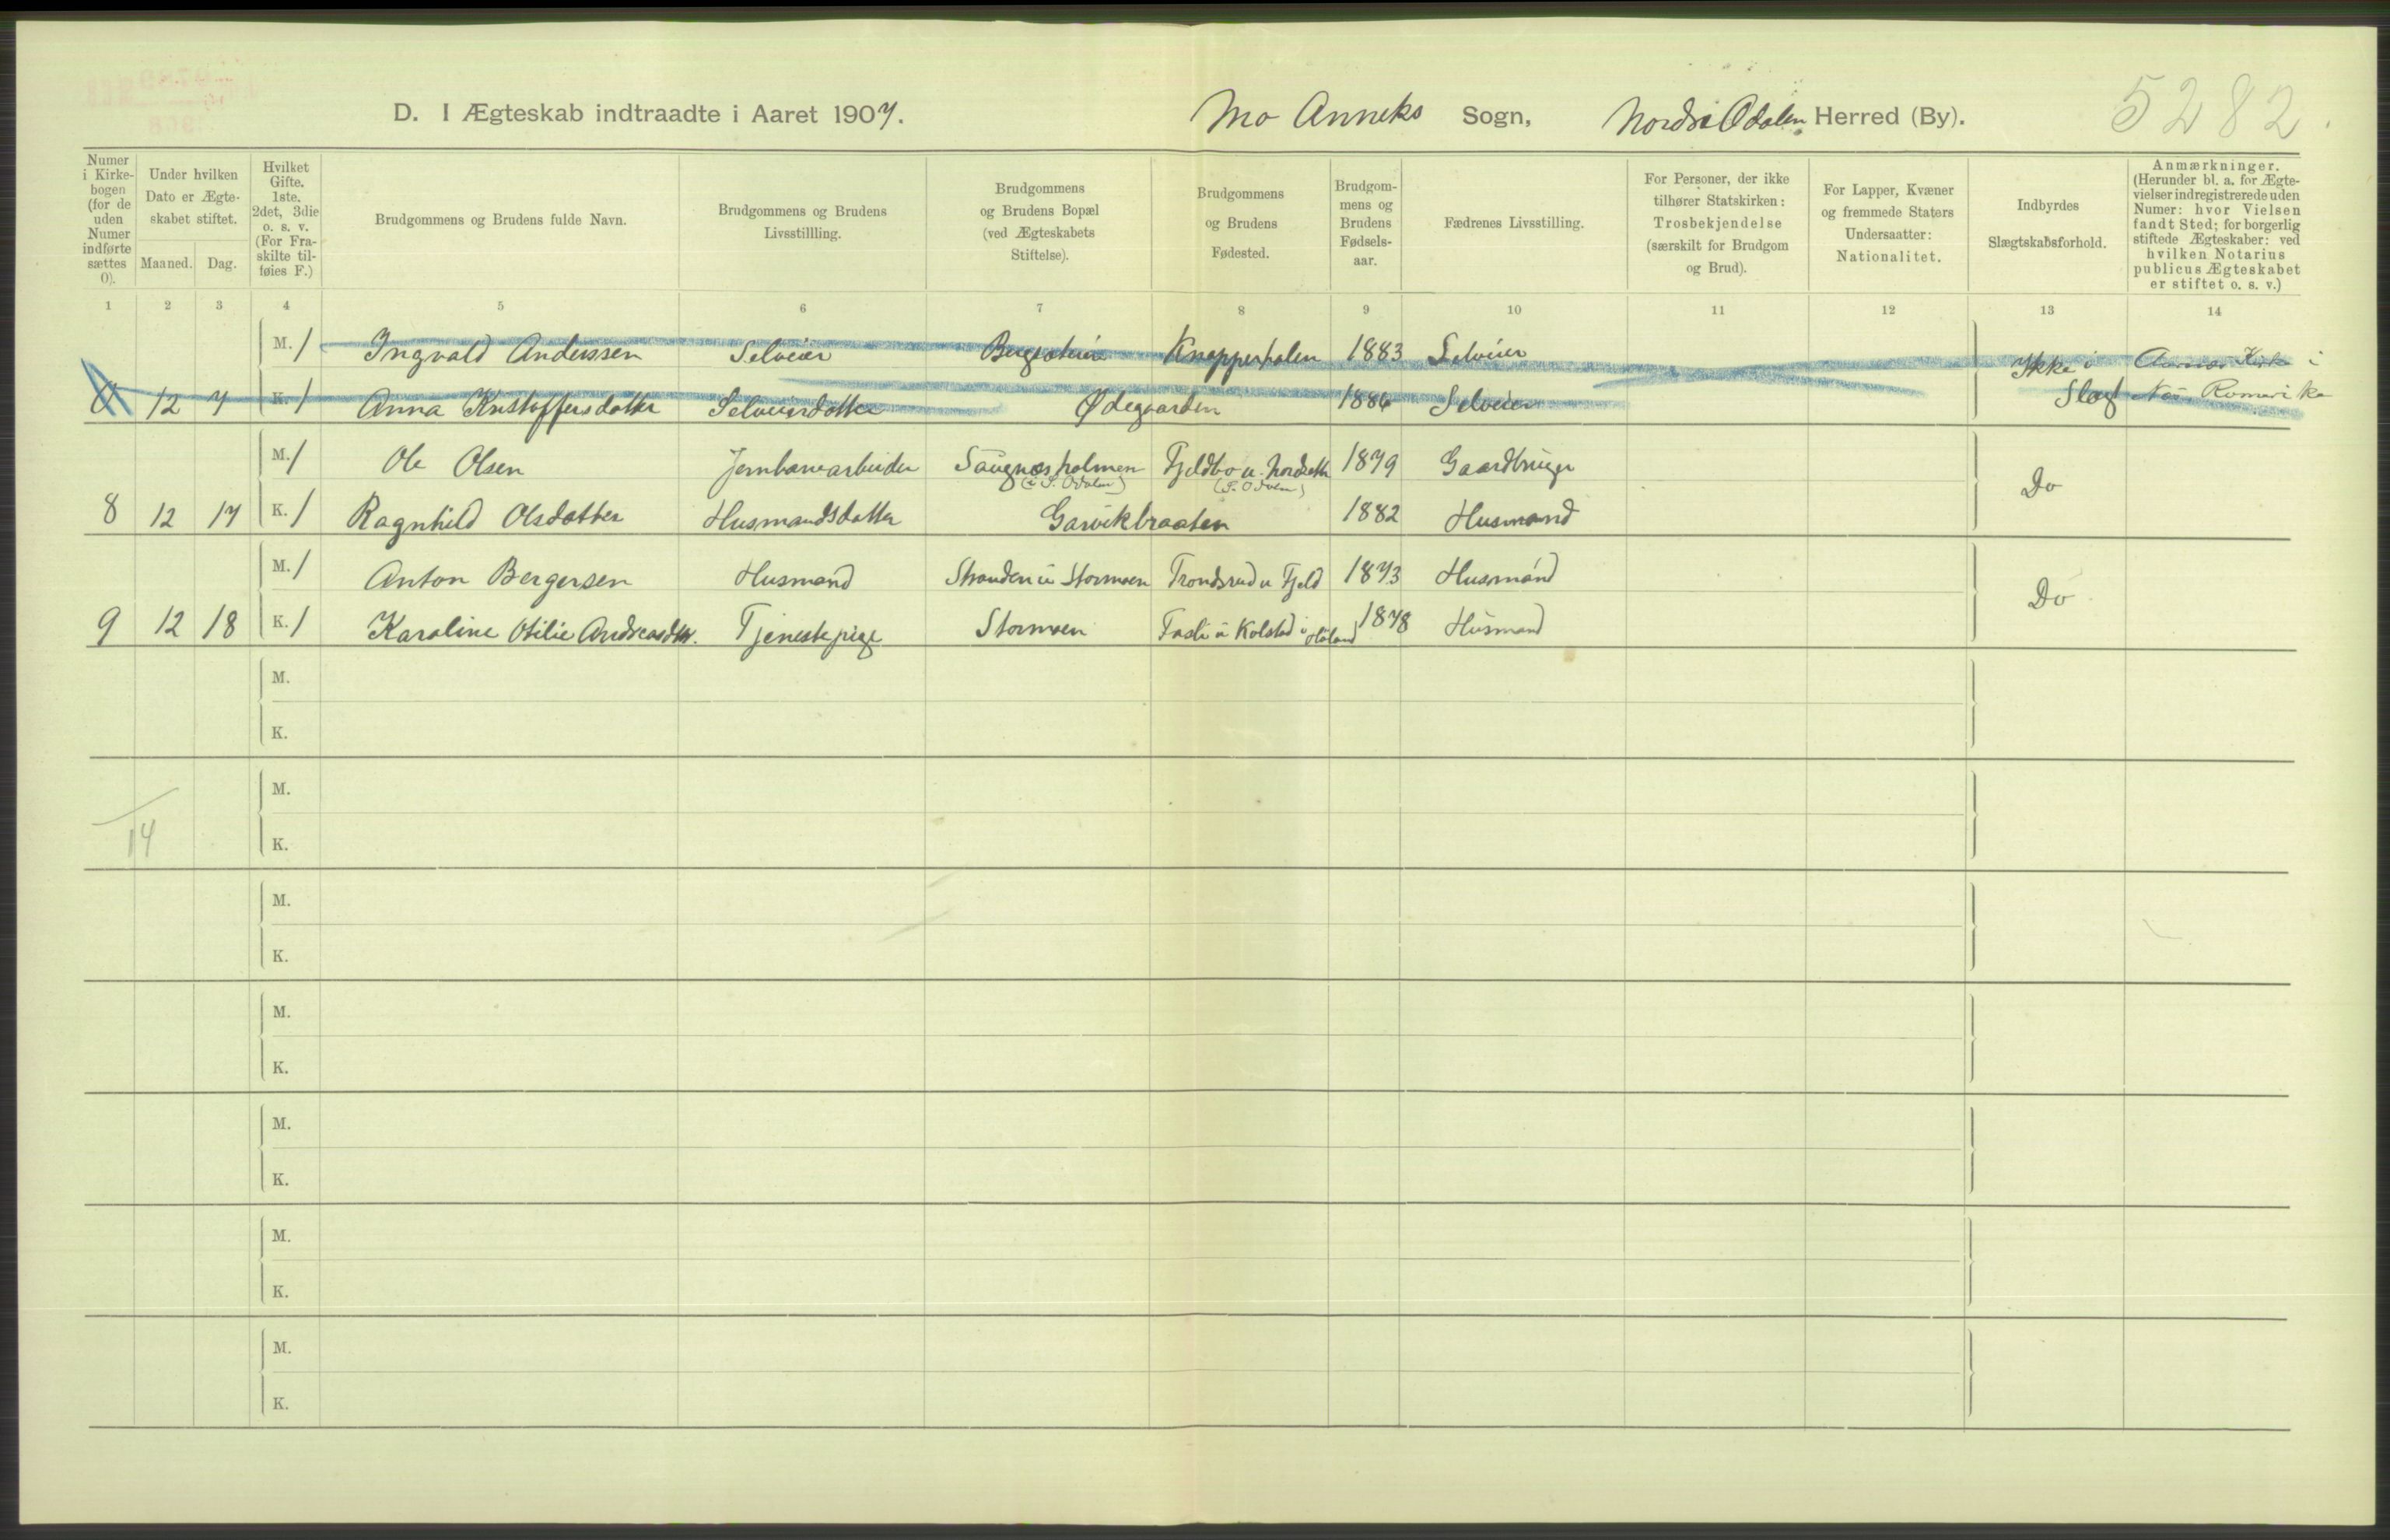 D. I Ægteskab indtraadte i Aaret 1907. Mo Anneks Sogn, Nordre Odalen Herred (By). 5282.
Numer i Kirke-bogen (for de uden Numer indførte sættes 0).
Under hvilken Dato er Ægte-skabet stiftet.
Maaned. Dag.
Hvilket Gifte. 1ste. 2det, 3die o. s. v. (For Fra-skilte til-føies F.)
Brudgommens og Brudens fulde Navn.
Brudgommens og Brudens Livsstillling.
Brudgommens og Brudens Bopæl (ved Ægteskabets Stiftelse).
Brudgommens og Brudens Fødested.
Brudgom-mens og Brudens Fødsels-aar.
Fædrenes Livsstilling.
For Personer, der ikke tilhører Statskirken: Trosbekjendelse (særskilt for Brudgom og Brud).
For Lapper, Kvæner og fremmede Staters Undersaatter: Nationalitet.
Indbyrdes Slægtskabsforhold.
Anmærkninger. (Herunder bl. a. for Ægte-vielser indregistrerede uden Numer: hvor Vielsen fandt Sted; for borgerlig stiftede Ægteskaber: ved hvilken Notarius publicus Ægteskabet er stiftet o. s. v.)
1 2 3 4 5 6 7 8 9 10 11 12 13 14
M. 1 Ingvald Anderssen Selveier 1883 Selveier Ikke i Kirke i
0 12 7 K. 1 Anna Kristoffersdatter Selveierdatter Ødegaarden 1886 Selveier Slægt Næs Romerike
M. 1 Ole Olsen Jernbanearbeider Saugnesholmen Fjeldbo u. Nordseth 1879 Gaardbruger
(i S. Odalen) (S. Odalen)
Do
8 12 17 K. 1 Ragnhild Olsdatter Husmandsdatter Garvikbraaten 1882 Husmand
M. 1 Anton Bergersen Husmand Stranden u Stormoen Trondsrud u Fjeld 1873 Husmand
Do
9 12 18 K. 1 Karoline Otilie Andreasdtr. Tjenestepige Stormoen u Kolstad i Høland 1878 Husmand
M.
K.
M.
14 K.
M.
K.
M.
K.
M.
K.
M.
K.
M.
K.